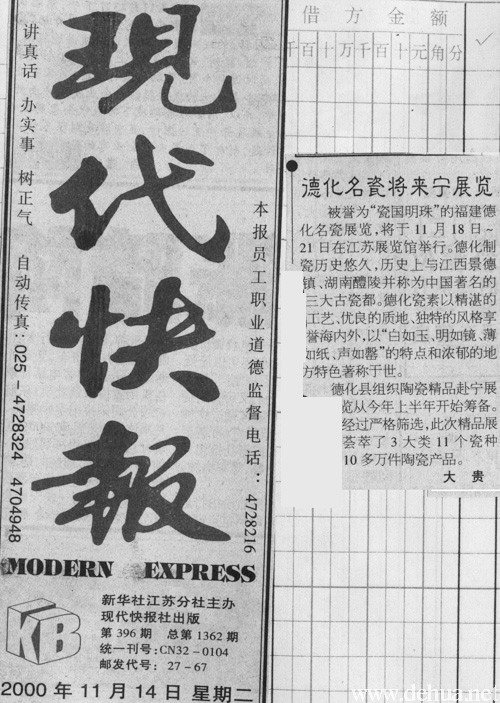 讲真话 办实事 树正气
自动传真:025-4728324 4704948
現代快報
本报员工职业道德监督电话:4728216
MODERN EXPRESS
KB
新华社江苏分社主办
现代快报社出版
第396期 总第1362期
统一刊号:CN32-0104
邮发代号: 27-67
2000年11月14日 星期二
借方金额
千百十万千百十元角分
德化名瓷将来宁展览
被誉为“瓷国明珠”的福建德
化名瓷展览,将于11月18日~
21日在江苏展览馆举行。德化制
瓷历史悠久,历史上与江西景德
镇、湖南醴陵并称为中国著名的
三大古瓷都。德化瓷素以精湛的
工艺、优良的质地、独特的风格享
誉海内外,以“白如玉、明如镜、薄
如纸、声如罄”的特点和浓郁的地
方特色著称于世。
德化县组织陶瓷精品赴宁展
览从今年上半年开始筹备。
经过严格筛选,此次精品展
荟萃了3大类11个瓷种
10多万件陶瓷产品。
大贵
www.dehua.net